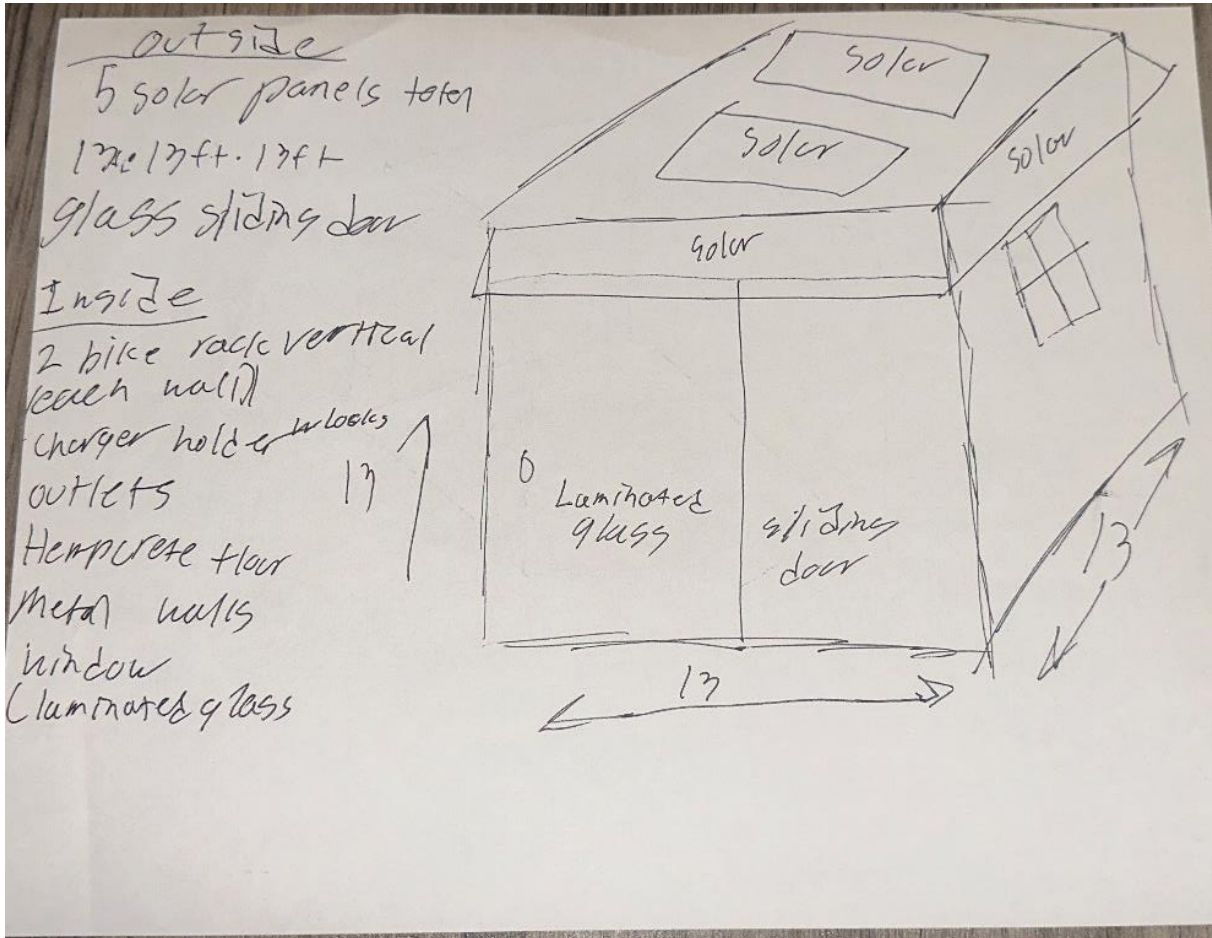 outside
5 solar panels total
13ft. 13ft
glass sliding door
Inside
2 bike rack vertical
(each wall)
charger holder w locks
outlets
Hempcrete floor
Metal walls
window
(Laminated glass
13
solar
solar
solar
solar
Laminated
glass
sliding
door
13
13